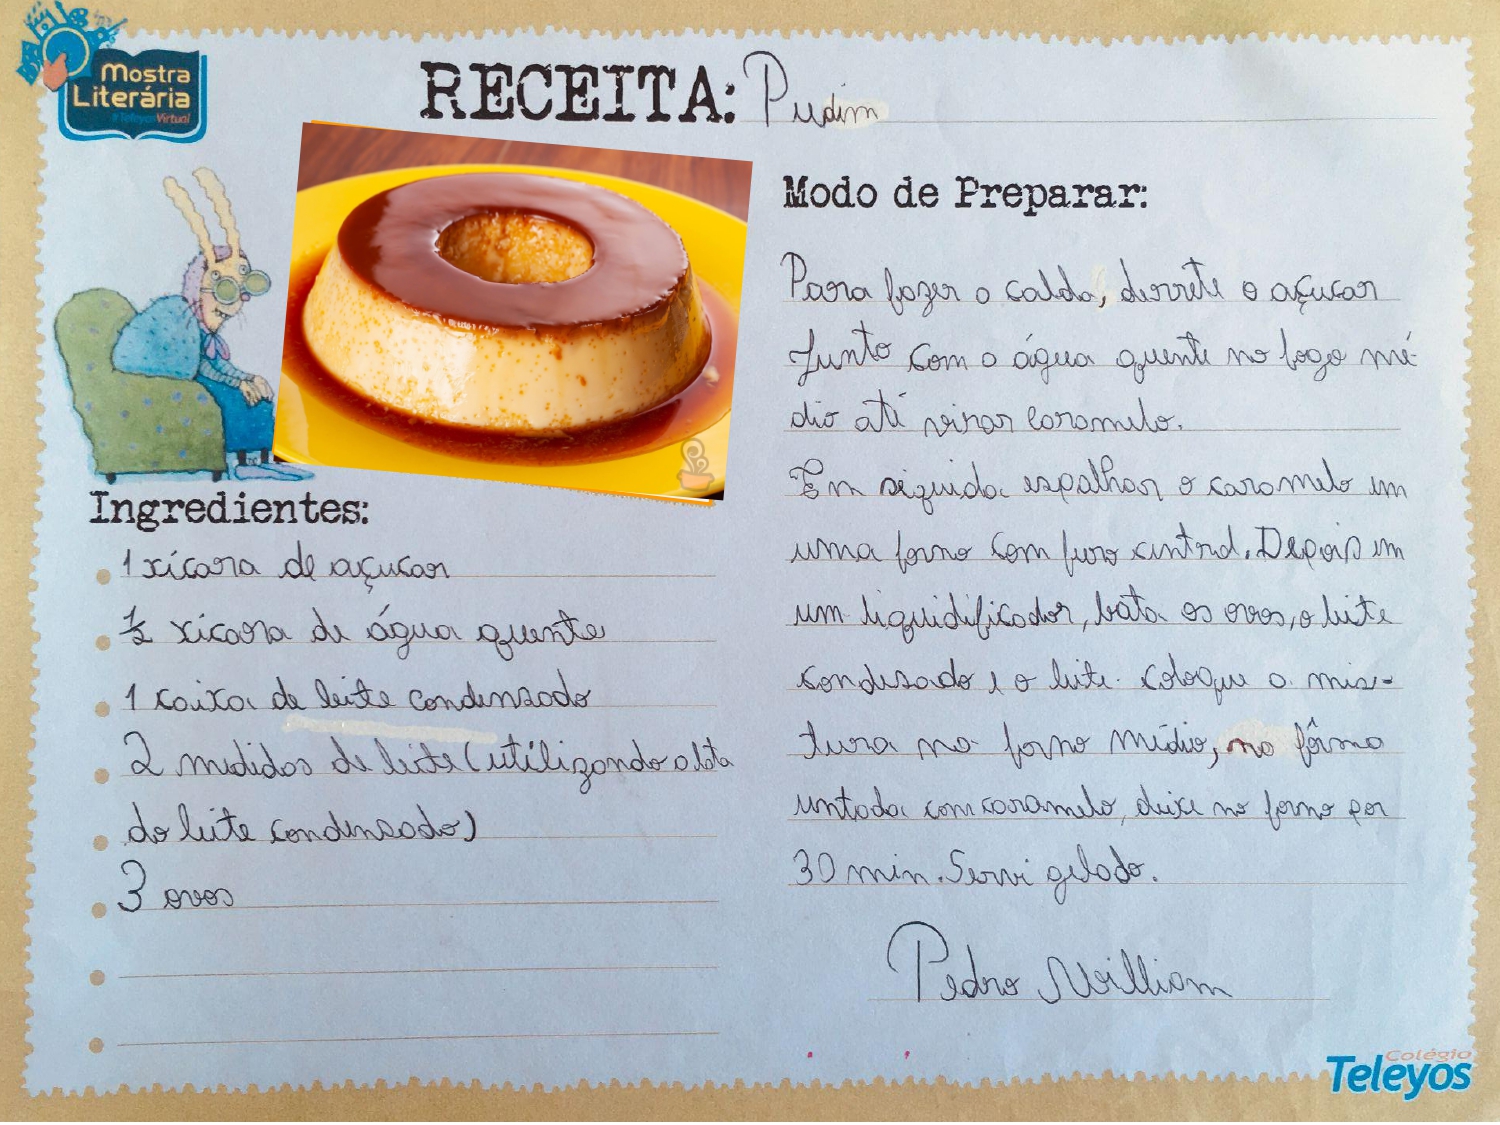 Mostra
Literária
#Teleyos Virtual
RECEITA: Pudim
Ingredientes:
1 xícara de açucar
1/2 xicara de água quente
1 caixa de leite condensado
2 medidas de leite (utilizando a lata
do leite condensado)
3 ovos
Modo de Preparar:
Para fazer a calda, derrete o açucar
Junto com a água quente no fogo mé-
dio até virar caramelo.
Em seguida espalhar o caramelo em
uma forma com furo central. Depois em
um liquidificador, bata os ovos, o leite
condesado e o leite. coloque a mis-
tura no forno médio, na fôrma
untada com caramelo, deixe no forno por
30 min. Servi gelado.
Pedro William
Colégio
Teleyos